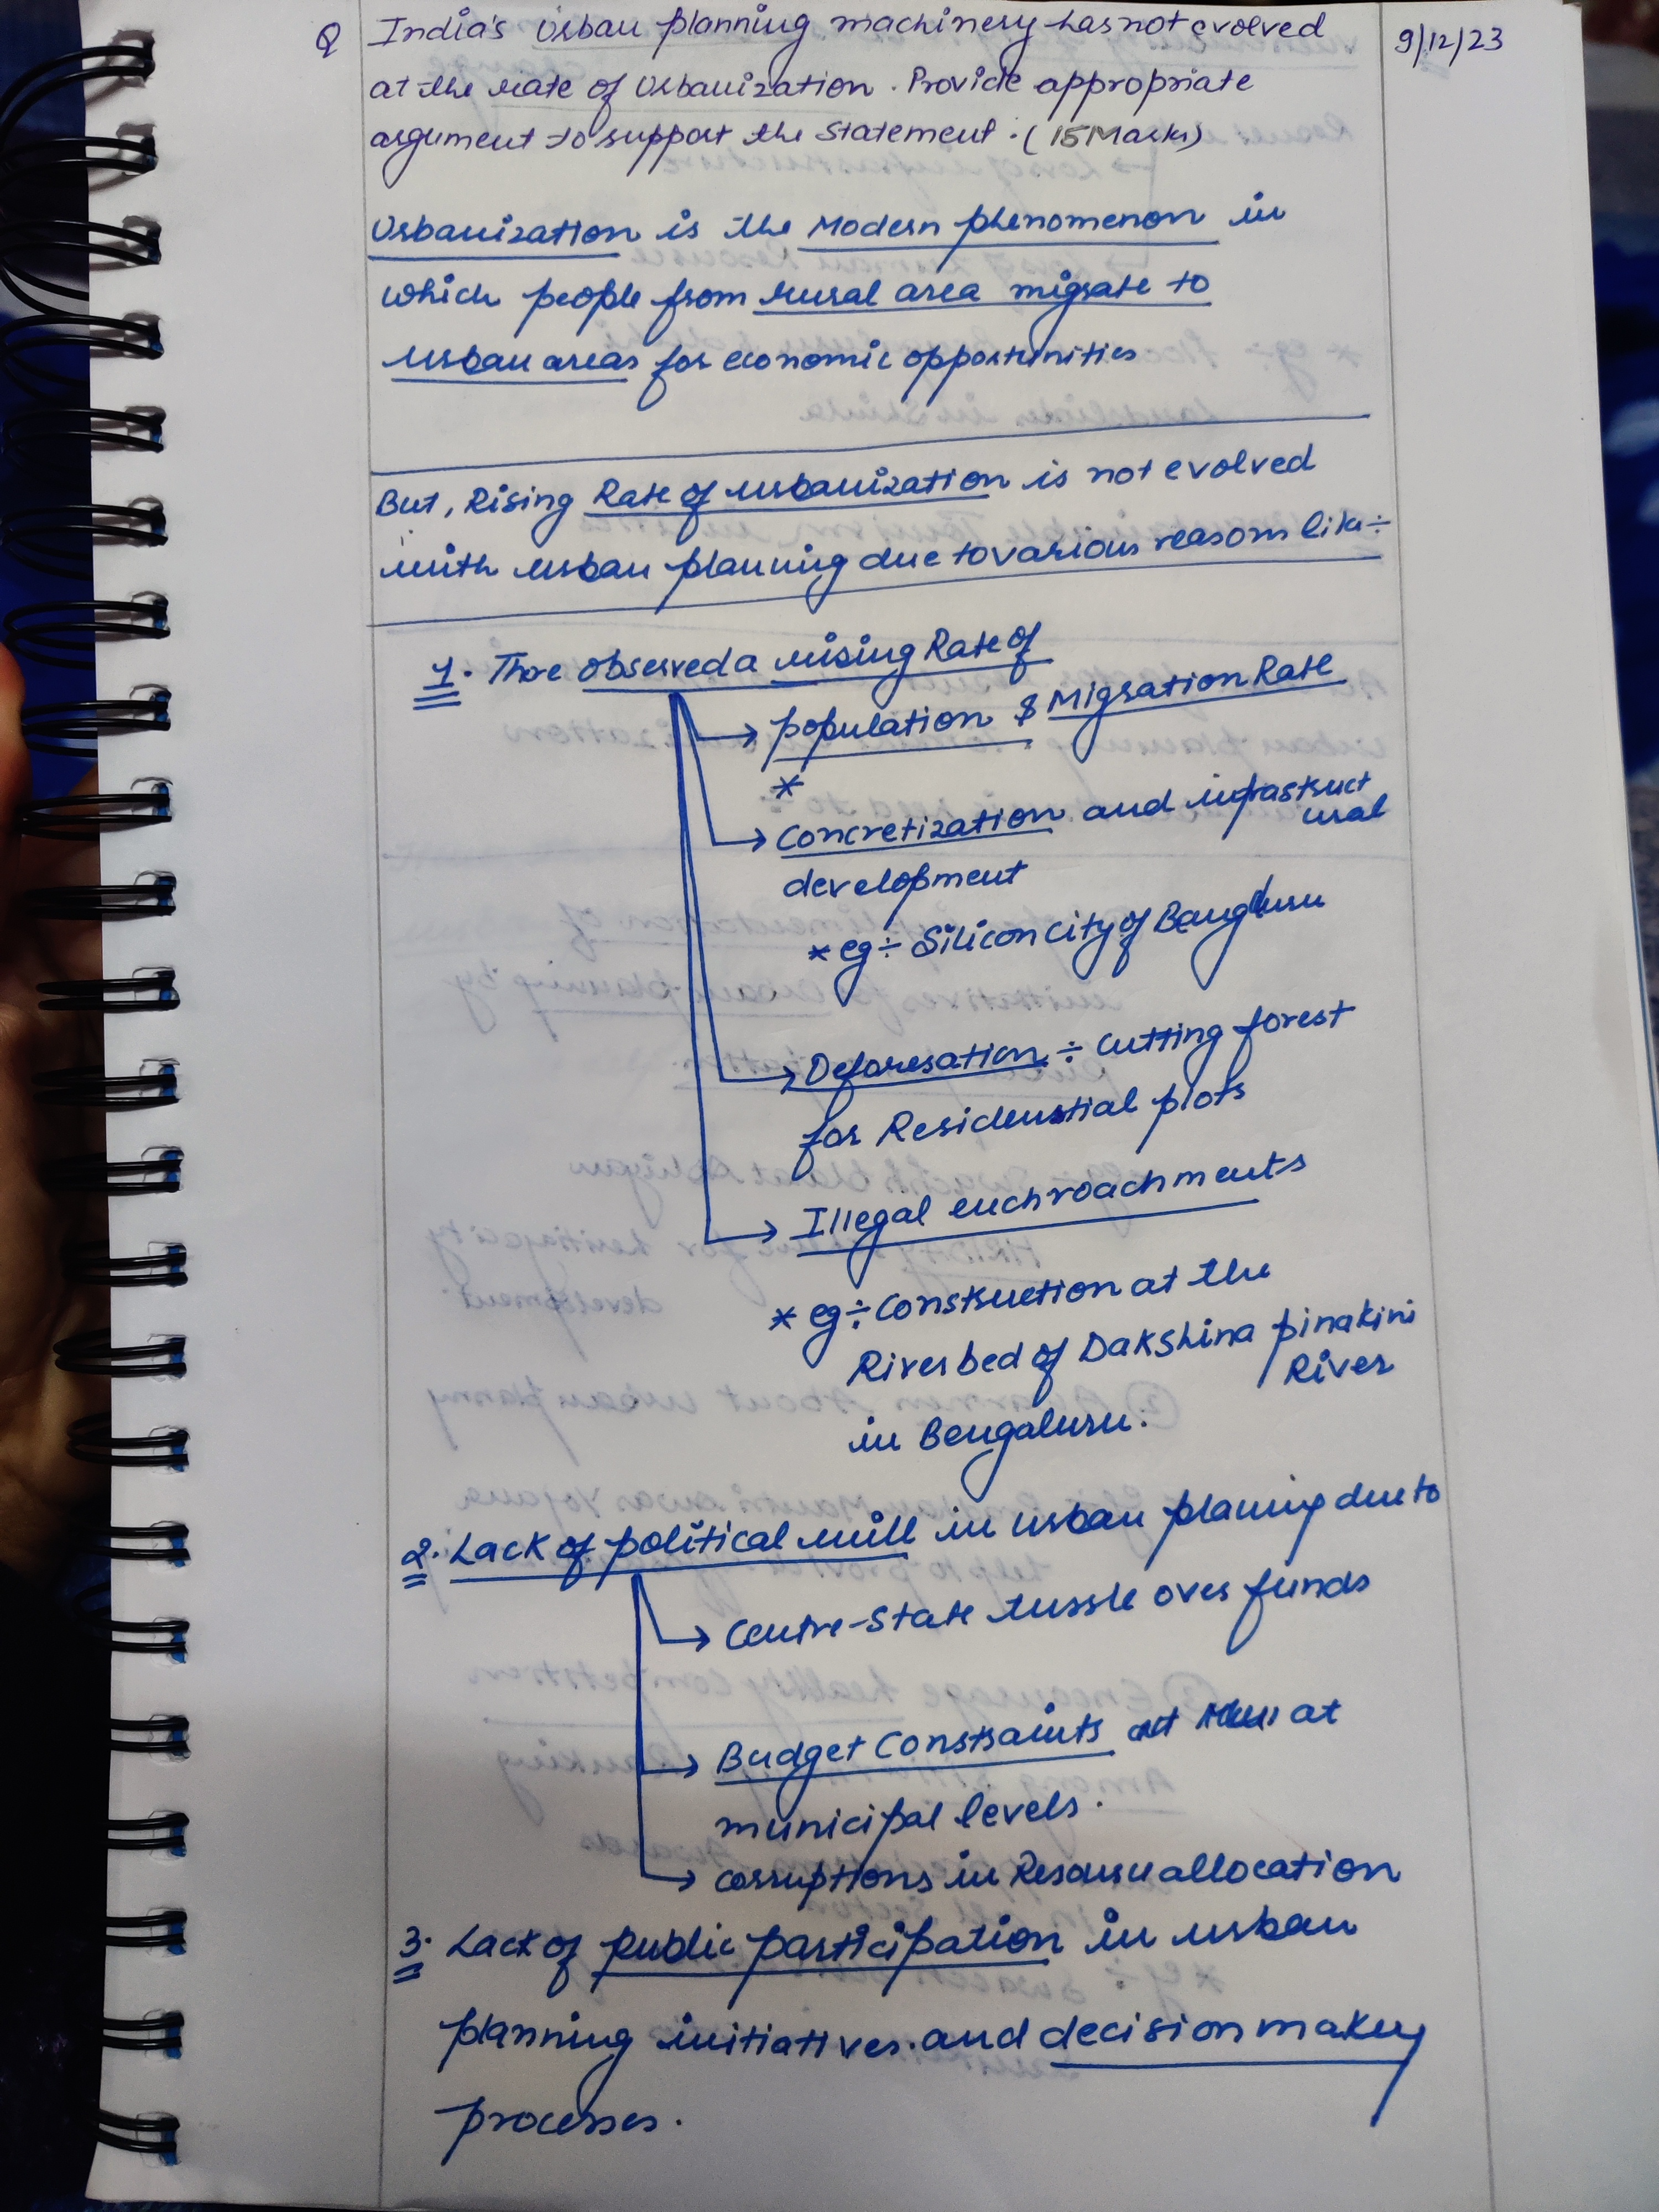 Q India's Urban planning machinery has not evolved
9/12/23
at the rate of Urbanization. Provide appropriate
argument to support the statement. (15 Marks)
Urbanization is the Modern phenomenon in
which people from rural area migrate to
urban areas for economic opportunities
But, Rising Rate of urbanization is not evolved
with urban planning due to various reasons like ÷
1. There observed a rising Rate of
→ population & Migration Rate
*
→ Concretization and infrastructural
development
* eg ÷ Silicon city of Bengluru
→ Deforesation ÷ Cutting forest
for Residenstial plots
→ Illegal enchroachments
* eg ÷ Construction at the
River bed of Dakshina pinakini
River
in Bengaluru.
2. Lack of political will in urban planing due to
→ Centre-State tussle over funds
→ Budget Constraints at
municipal levels.
→ corruptions in Resource allocation
3. Lack of public participation in urban
planning initiatives and decision making
processes.